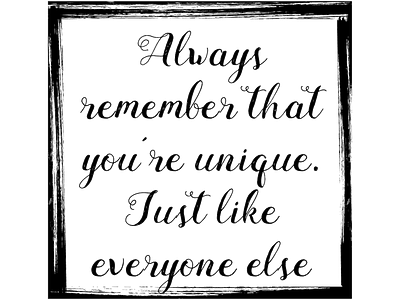 Always
remember that
you're unique.
Just like
everyone else